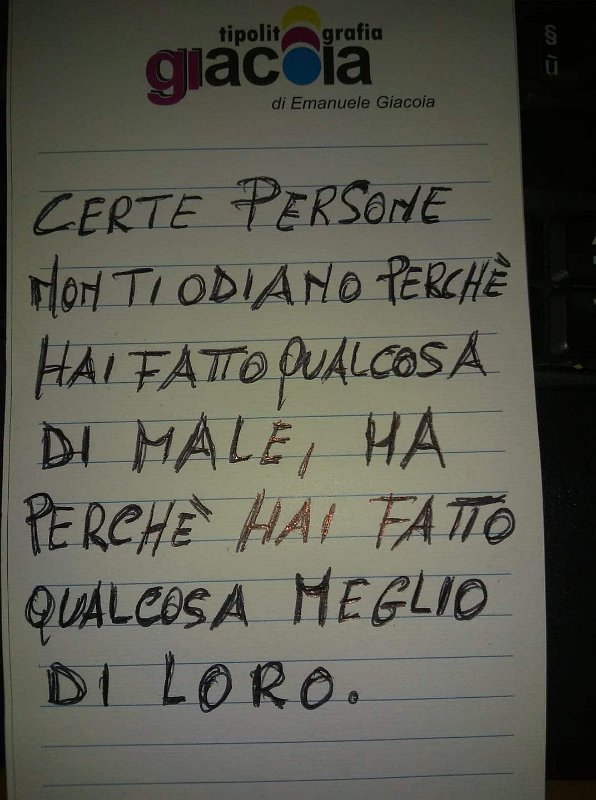 tipolitografia
giacoia
di Emanuele Giacoia
§
ù
CERTE PERSONE
NON TI ODIANO PERCHÈ
HAI FATTO QUALCOSA
DI MALE, HA
PERCHÈ HAI FATTO
QUALCOSA MEGLIO
DI LORO.